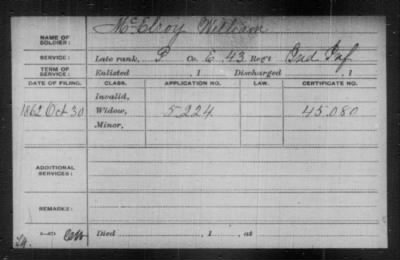 NAME OF SOLDIER: McElroy William
SERVICE: Late rank, P Co. E, 43 Reg't Ind Inf
TERM OF SERVICE: Enlisted , 1 Discharged , 1
DATE OF FILING. CLASS. APPLICATION NO. LAW. CERTIFICATE NO.
Invalid,
1862 Oct 30 Widow, 5224 45.080
Minor,
ADDITIONAL SERVICES:
REMARKS:
Died , 1 , at